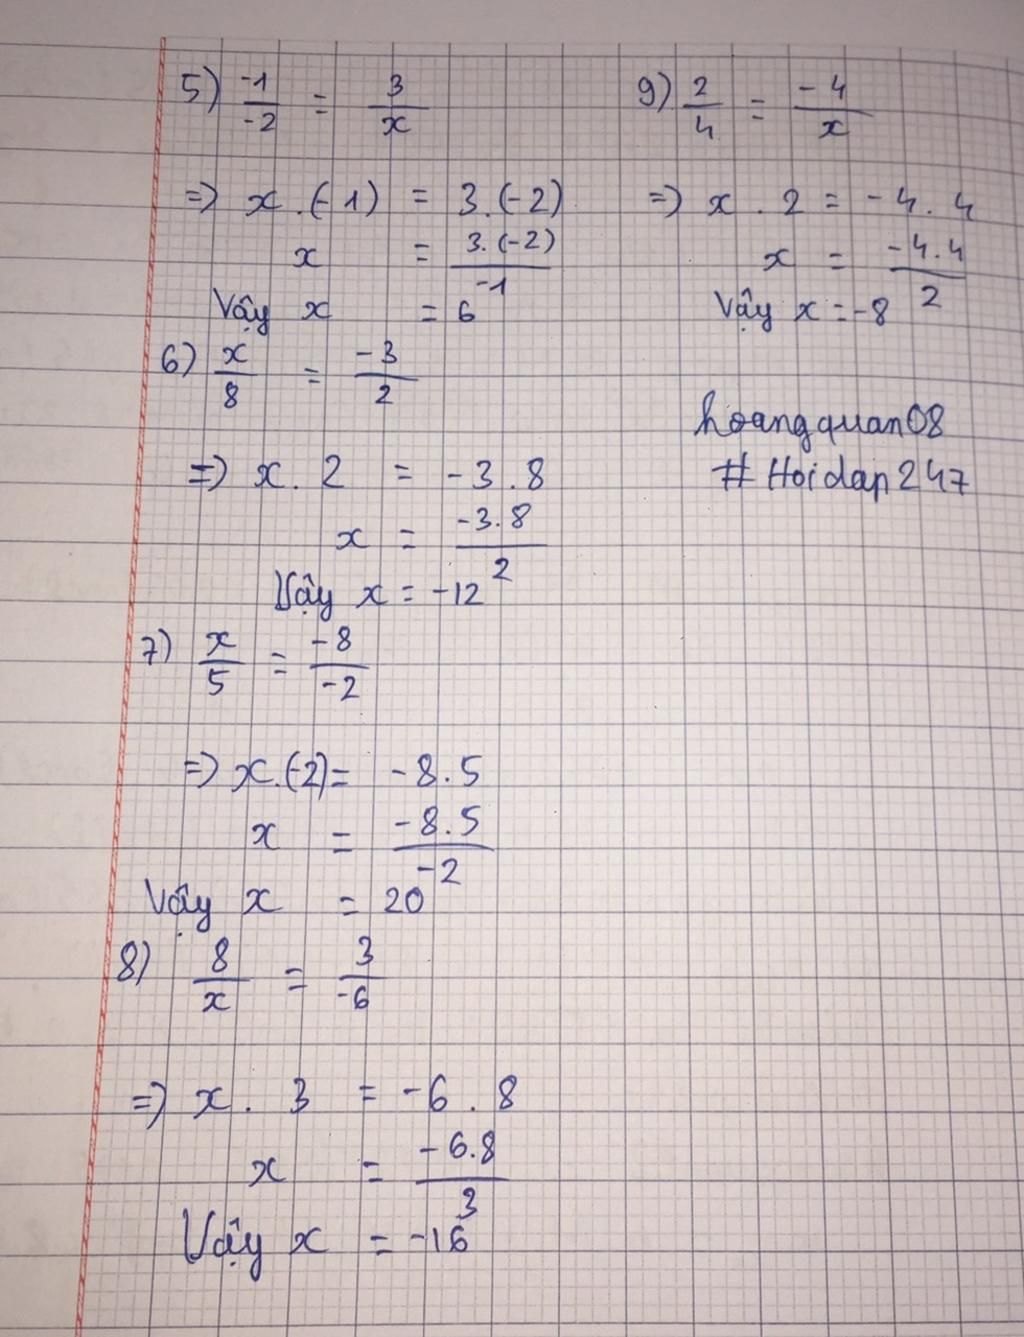 5) -1/-2 = 3/x
=> x . (-1) = 3.(-2)
x = 3.(-2)/-1
Vậy x = 6
6) x/8 = -3/2
=> x . 2 = -3.8
x = -3.8/2
Vậy x = -12
7) x/5 = -8/-2
=> x.(-2) = -8.5
x = -8.5/-2
Vậy x = 20
8) 8/x = 3/-6
=> x . 3 = -6 . 8
x = -6.8/3
Vậy x = -16
9) 2/4 = -4/x
=> x . 2 = -4.4
x = -4.4/2
Vậy x = -8
hoangquan08
# Hoidap247